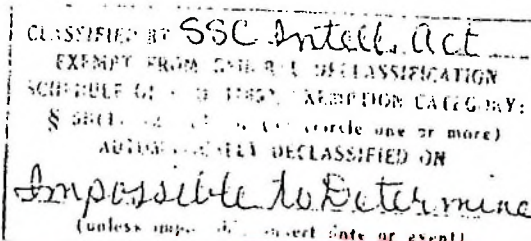 CLASSIFIED BY SSC Intell. Act
EXEMPT FROM GENERAL DECLASSIFICATION
SCHEDULE OF EXEMPTION CATEGORY:
§ (circle one or more)
AUTOMATICALLY DECLASSIFIED ON
Impossible to Determine
(unless insert date or event)